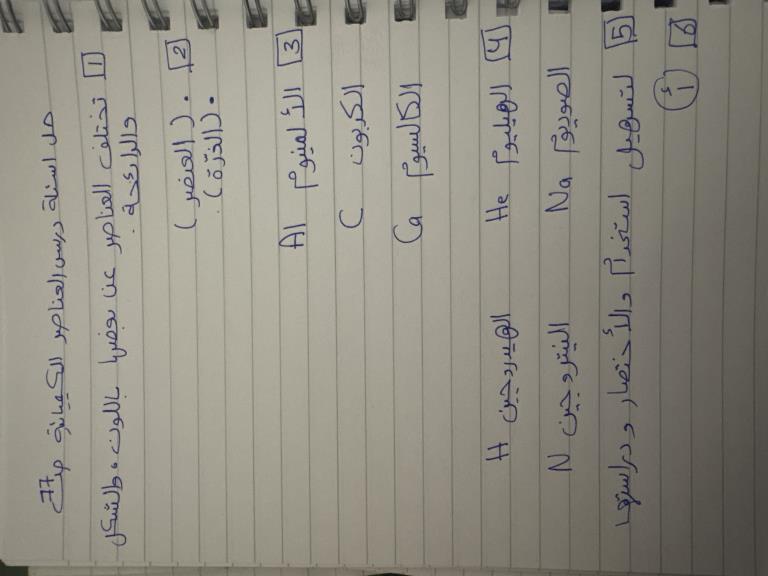 حل اسئلة درس العناصر الكيميائية ص 77
1 تختلف العناصر عن بعضها باللون، والشكل
والرائحة.
2 . (العنصر)
. (الذرة)
3 الألمنيوم Al
الكربون C
الكالسيوم Ca
4 الهيليوم He الهيدروجين H
الصوديوم Na النيتروجين N
5 لتسهيل استخدام والأختصار ودراستها
6 أ